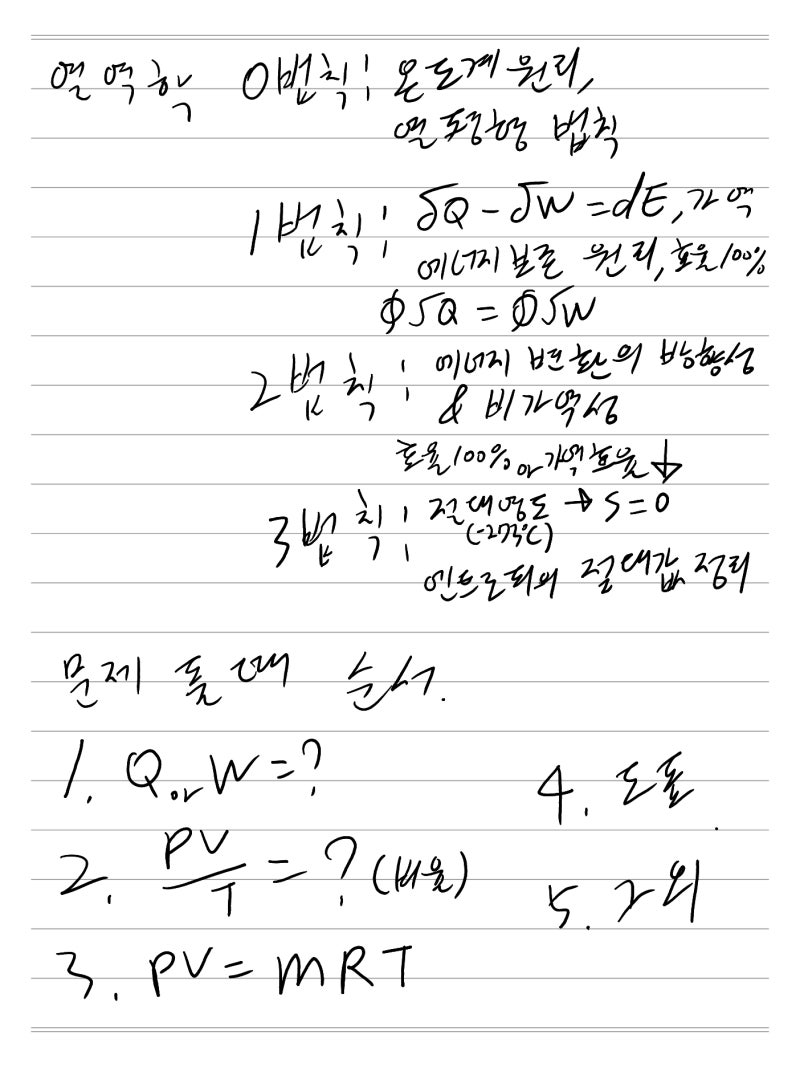 열역학 0법칙: 온도계 원리,
열평형 법칙
1법칙: δQ - δW = dE, 가역
에너지 보존 원리, 효율 100%
∮δQ = ∮δW
2법칙: 에너지 변환의 방향성
& 비가역성
효율 100% or 가역효율 ↓
3법칙: 절대영도 → S = 0
(-273℃)
엔트로피의 절대값 정리
문제 풀 때 순서.
1. Q or W = ?
2. PV/T = ? (비율)
3. PV = mRT
4. 도표.
5. 그 외